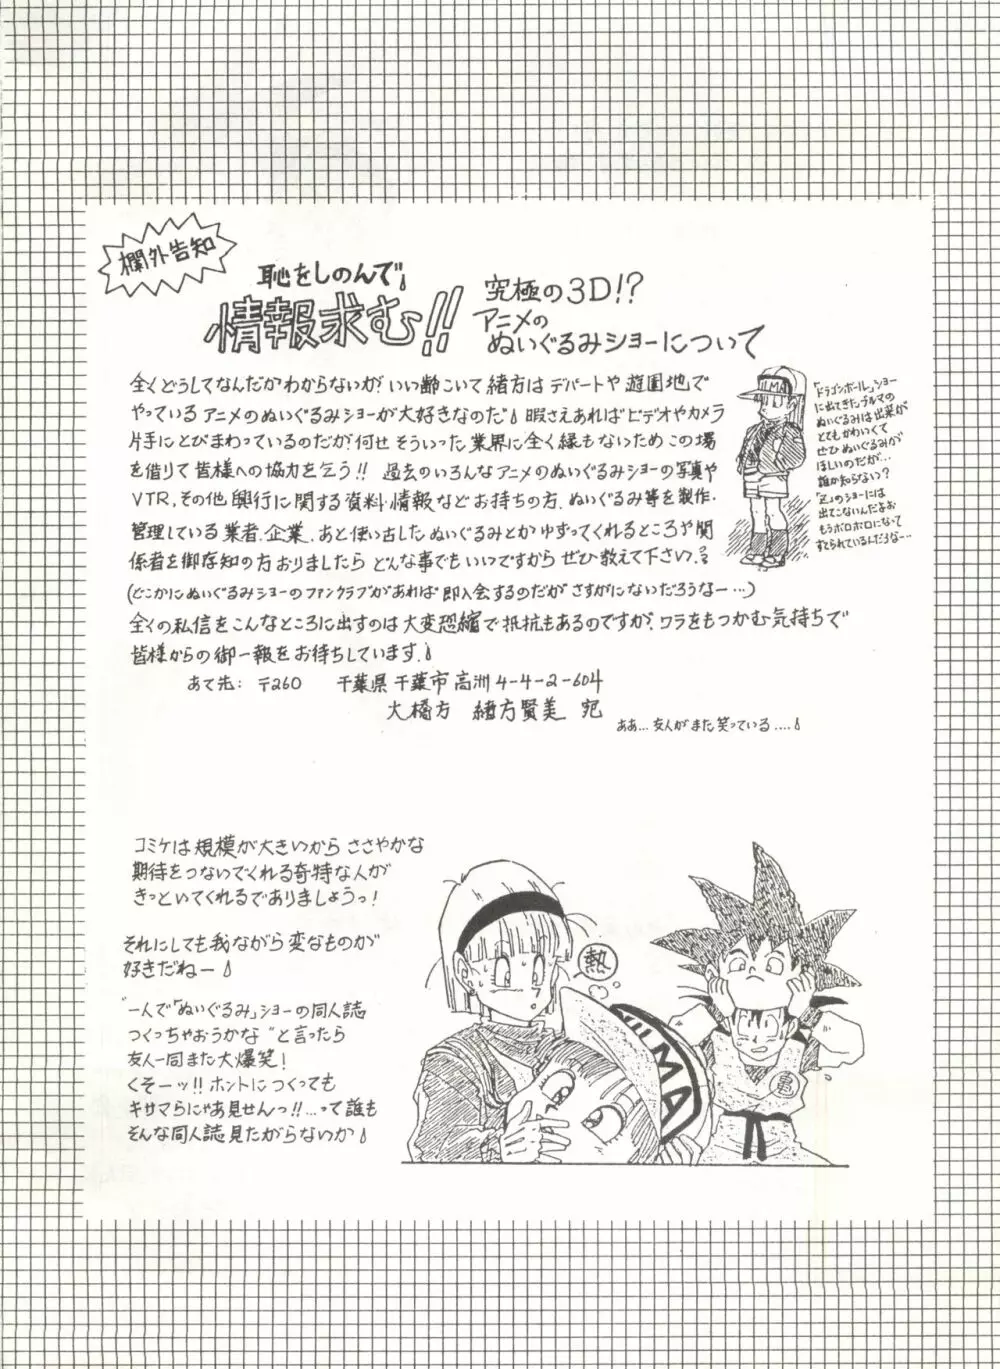 欄外告知
恥をしのんで♪
情報求む!!
究極の3D!?
アニメの
ぬいぐるみショーについて
全くどうしてなんだかわからないが、いい齢こいて緒方はデパートや遊園地で
やっているアニメのぬいぐるみショーが大好きなのだ♪ 暇さえあればビデオやカメラ
片手にとびまわっているのだが何せそういった業界に全く縁もないためこの場
を借りて皆様への協力を乞う!! 過去のいろんなアニメのぬいぐるみショーの写真や
VTR、その他興行に関する資料・情報などお持ちの方、ぬいぐるみ等を製作・
管理している業者、企業、あと使い古したぬいぐるみとかゆずってくれるところや関
係者を御存知の方おりましたらどんな事でもいいですからぜひ教えて下さい。
(どこかにぬいぐるみショーのファンクラブがあれば即入会するのだがさすがにないだろうなー…)
全くの私信をこんなところに出すのは大変恐縮で抵抗もあるのですが、ワラをもつかむ気持ちで
皆様からの御一報をお待ちしています♪
あて先: 〒260 千葉県千葉市高洲4-4-2-604
大橋方 緒方賢美 宛
ああ…友人がまた笑っている....♪
「ドラゴンボール」ショー
に出てきたブルマの
ぬいぐるみは出来が
とてもかわいくて
ぜひぬいぐるみが
ほしいのだが…
誰か知らない?
「Z」のショーには
出てこないんだよお
もうボロボロになって
すてられているんだろうなー…
ILMA
コミケは規模が大きいから ささやかな
期待をつないでくれる奇特な人が
きっといてくれるでありましょうっ!
それにしても我ながら変なものが
好きだねー♪
"一人で「ぬいぐるみ」ショーの同人誌
つくっちゃおうかな"と言ったら
友人一同また大爆笑!
くそーッ!! ホントにつくっても
キサマらにゃあ見せんっ!!…って誰も
そんな同人誌見たがらないか♪
熱
ULMA
亀